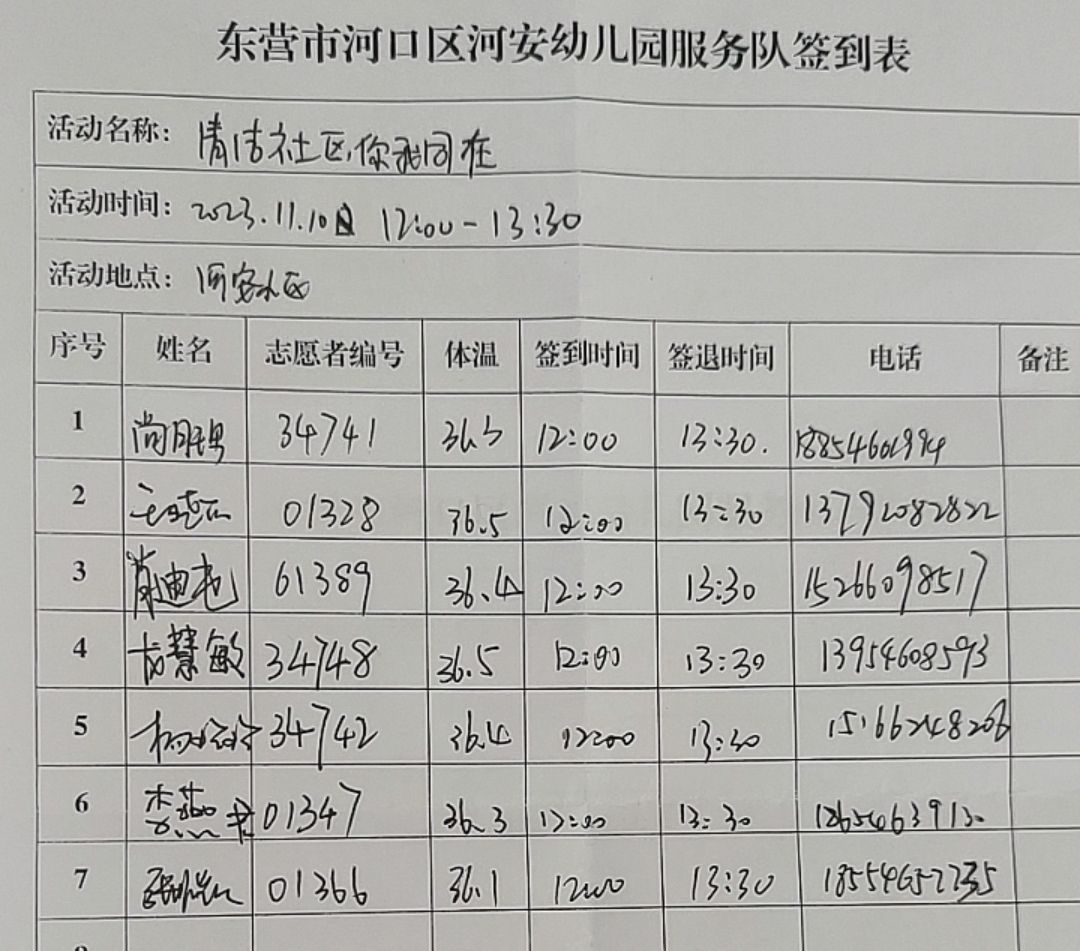 东营市河口区河安幼儿园服务队签到表
活动名称：清洁社区,你我同在
活动时间：2023.11.10日 12:00-13:30
活动地点：河安小区
序号 姓名 志愿者编号 体温 签到时间 签退时间 电话 备注
1 34741 36.5 12:00 13:30.
2 01328 36.5 12:00 13:30 13792082822
3 61389 36.4 12:00 13:30 15266098517
4 慧敏 34748 36.5 12:00 13:30 13954608593
5 34742 36.4 12:00 13:30 15166248206
6 01347 36.3 12:00 13:30
7 01366 36.1 12:00 13:30